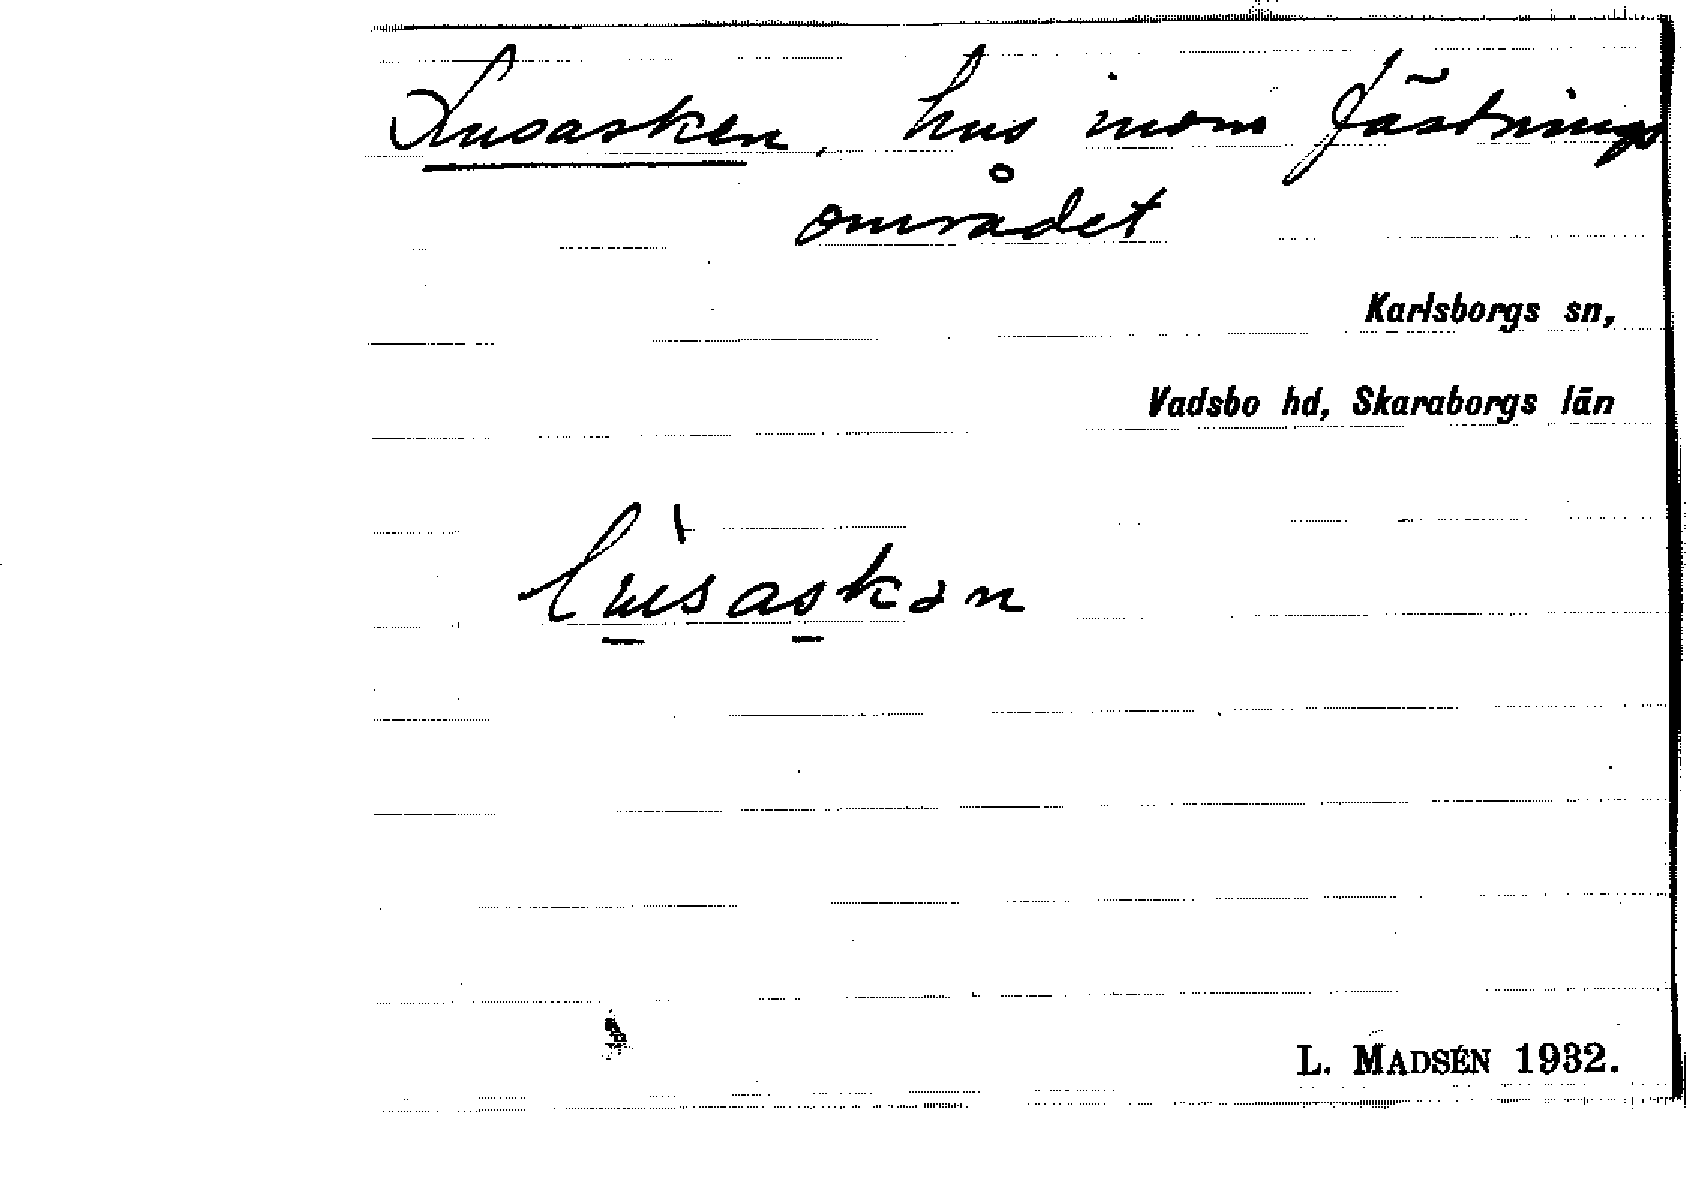 Lusasken, hus inom fästnings
området
Karlsborgs sn,
Vadsbo hd, Skaraborgs län
lùsaskən
L. MADSÉN 1932.